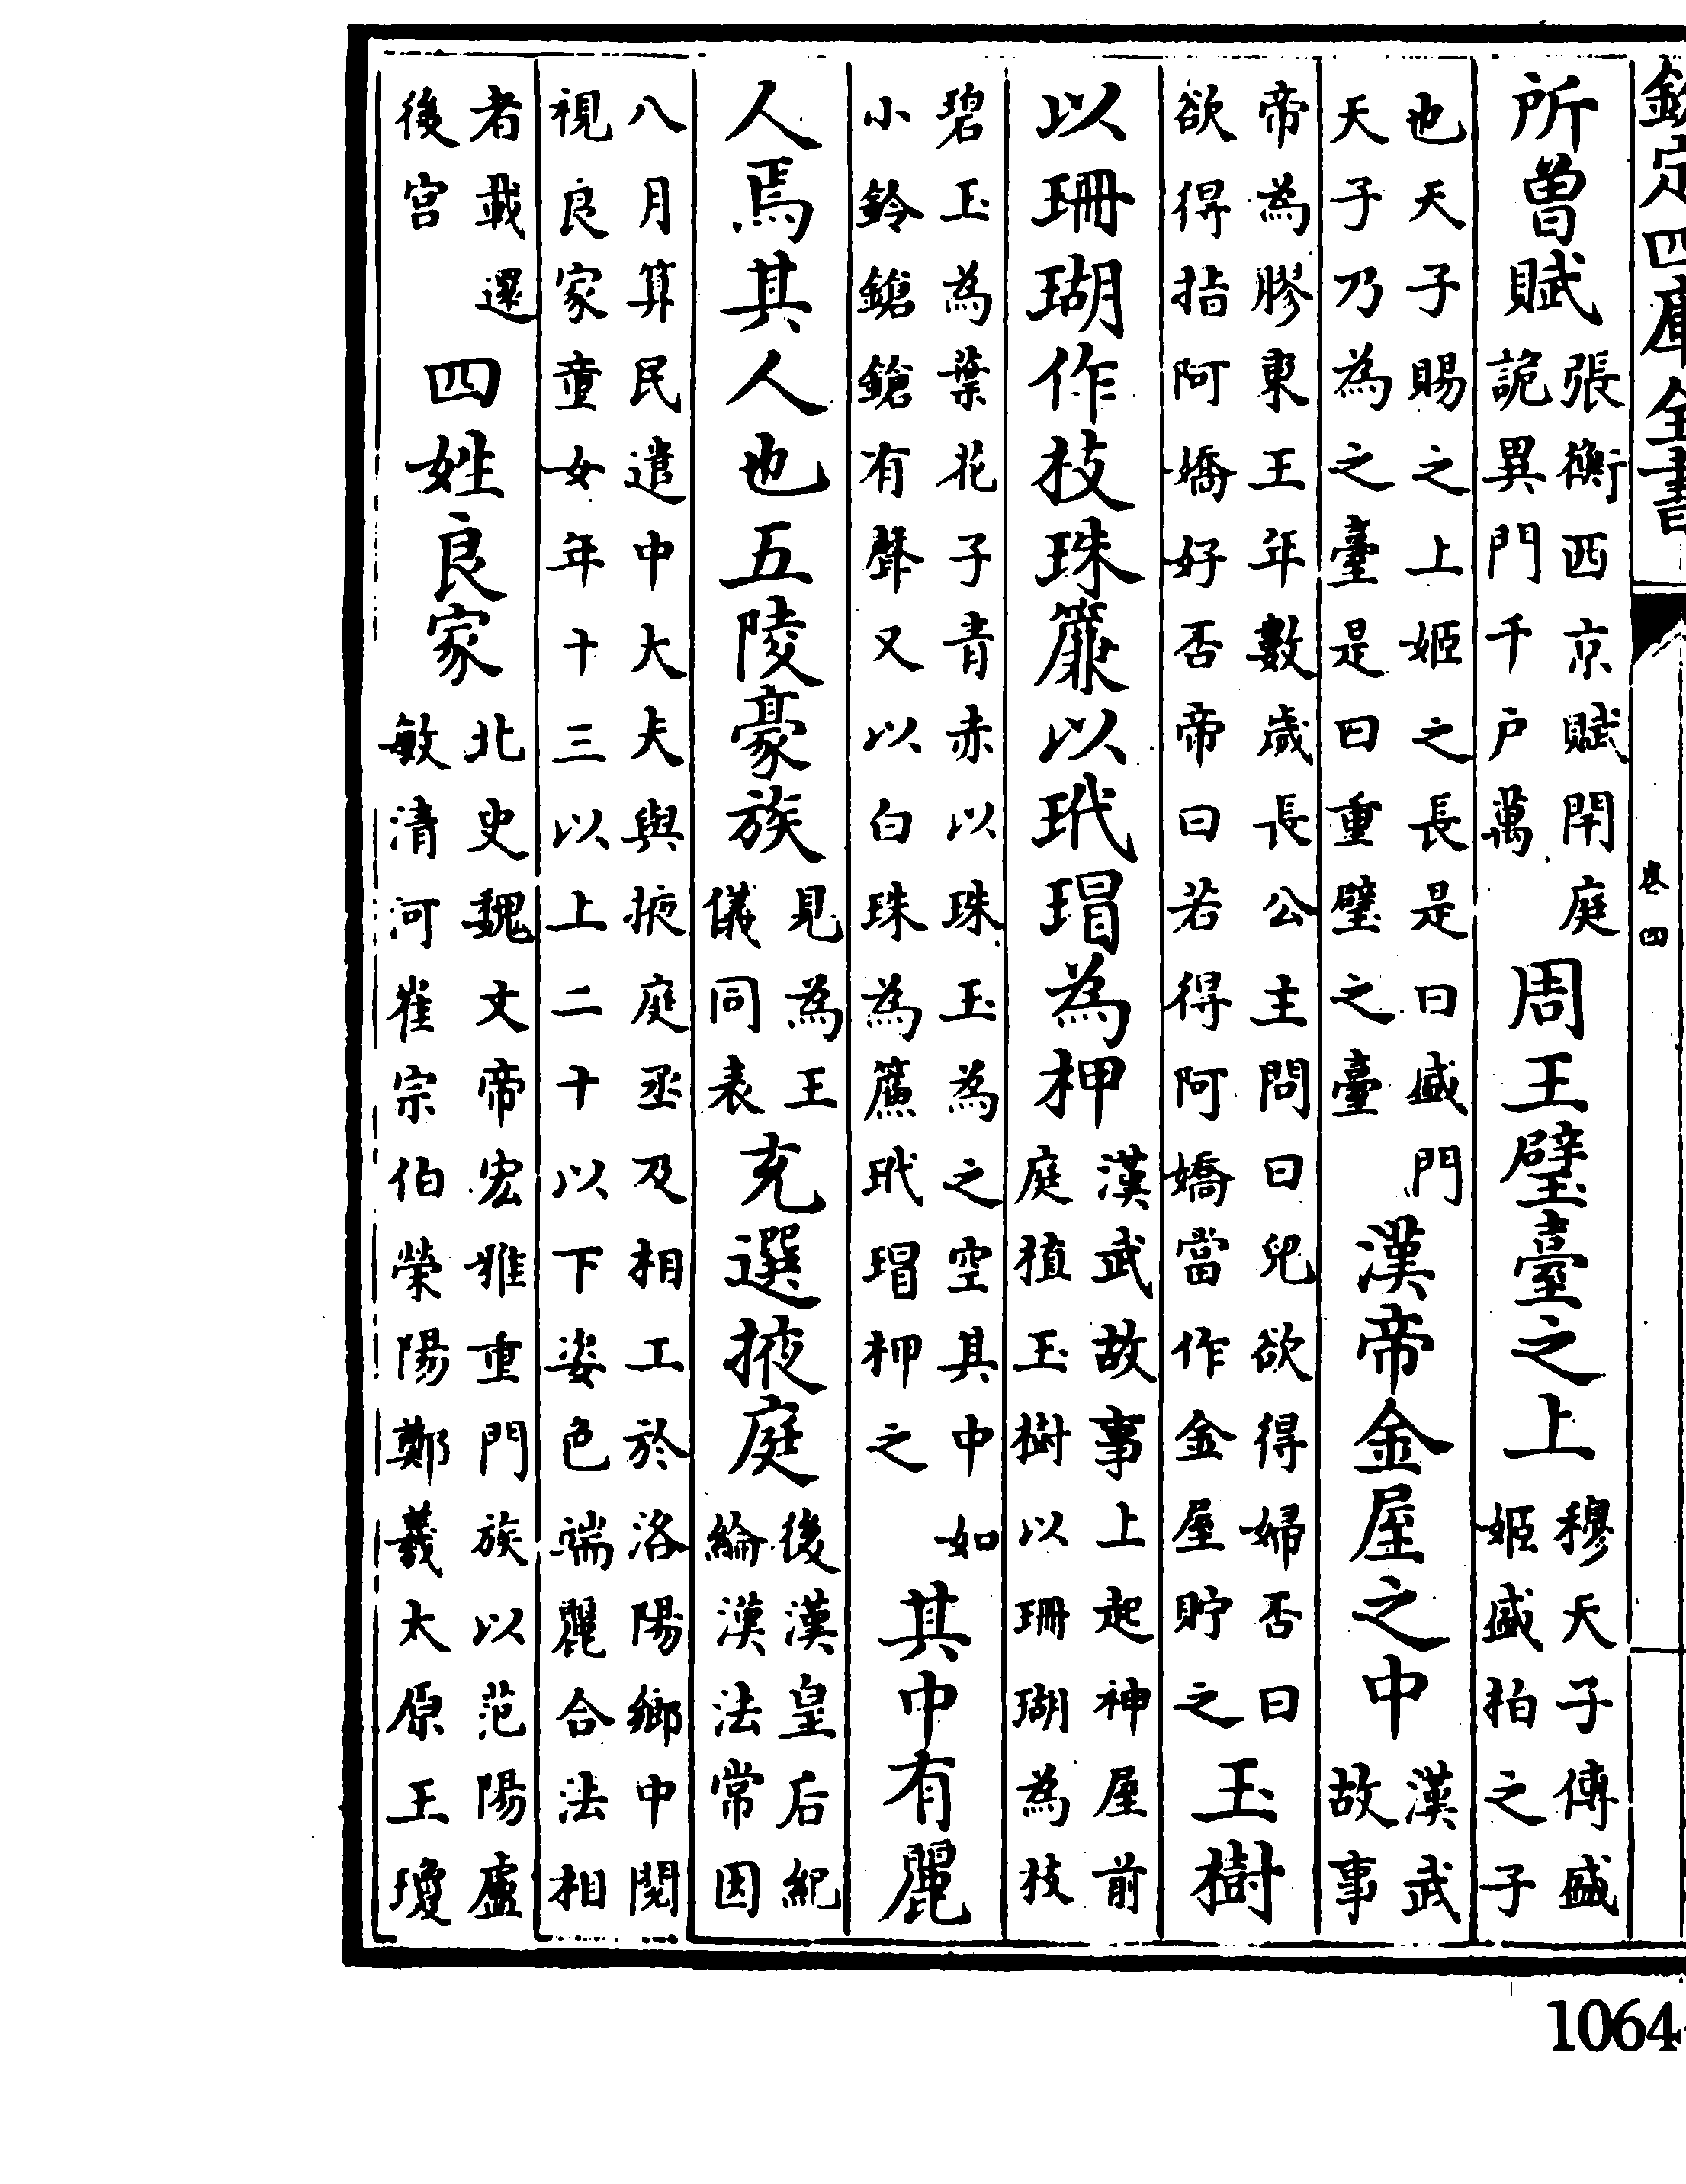 欽定四庫全書 卷四
所曾賦張衡西京賦閈庭詭異門千戶萬周王璧臺之上穆天子傳盛姬盛柏之子
也天子賜之上姬之長是曰盛門天子乃為之臺是曰重璧之臺漢帝金屋之中漢武故事
帝為膠東王年數歲長公主問曰兒欲得婦否曰欲得指阿嬌好否帝曰若得阿嬌當作金屋貯之玉樹
以珊瑚作枝珠簾以玳瑁為柙漢武故事上起神屋前庭植玉樹以珊瑚為枝
碧玉為葉花子青赤以珠玉為之空其中如小鈴鎗鎗有聲又以白珠為簾玳瑁柙之其中有麗
人焉其人也五陵豪族見為王儀同表充選掖庭後漢皇后紀綸漢法常因
八月算民遣中大夫與掖庭丞及相工於洛陽鄉中閱視良家童女年十三以上二十以下姿色端麗合法相
者載還後宮四姓良家北史魏文帝宏雅重門族以范陽盧敏清河崔宗伯榮陽鄭羲太原王瓊
1064